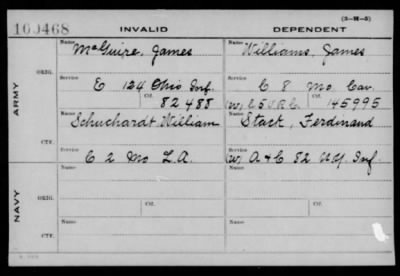 (3-H-5)
100468 INVALID DEPENDENT
Name Name
McGuire, James Williams, James
ARMY
ORIG.
Service Service
E 124 Ohio Inf. C 8 Mo. Cav.
Ctf. Ctf.
82488 145995
Name Name
Schuchardt William Stack, Ferdinand
CTF.
Service Service
E 2 Mo L.A. (W) A & C 52 N.Y. Inf.
NAVY
ORIG.
Name Name
Ctf. Ctf.
CTF.
Name Name